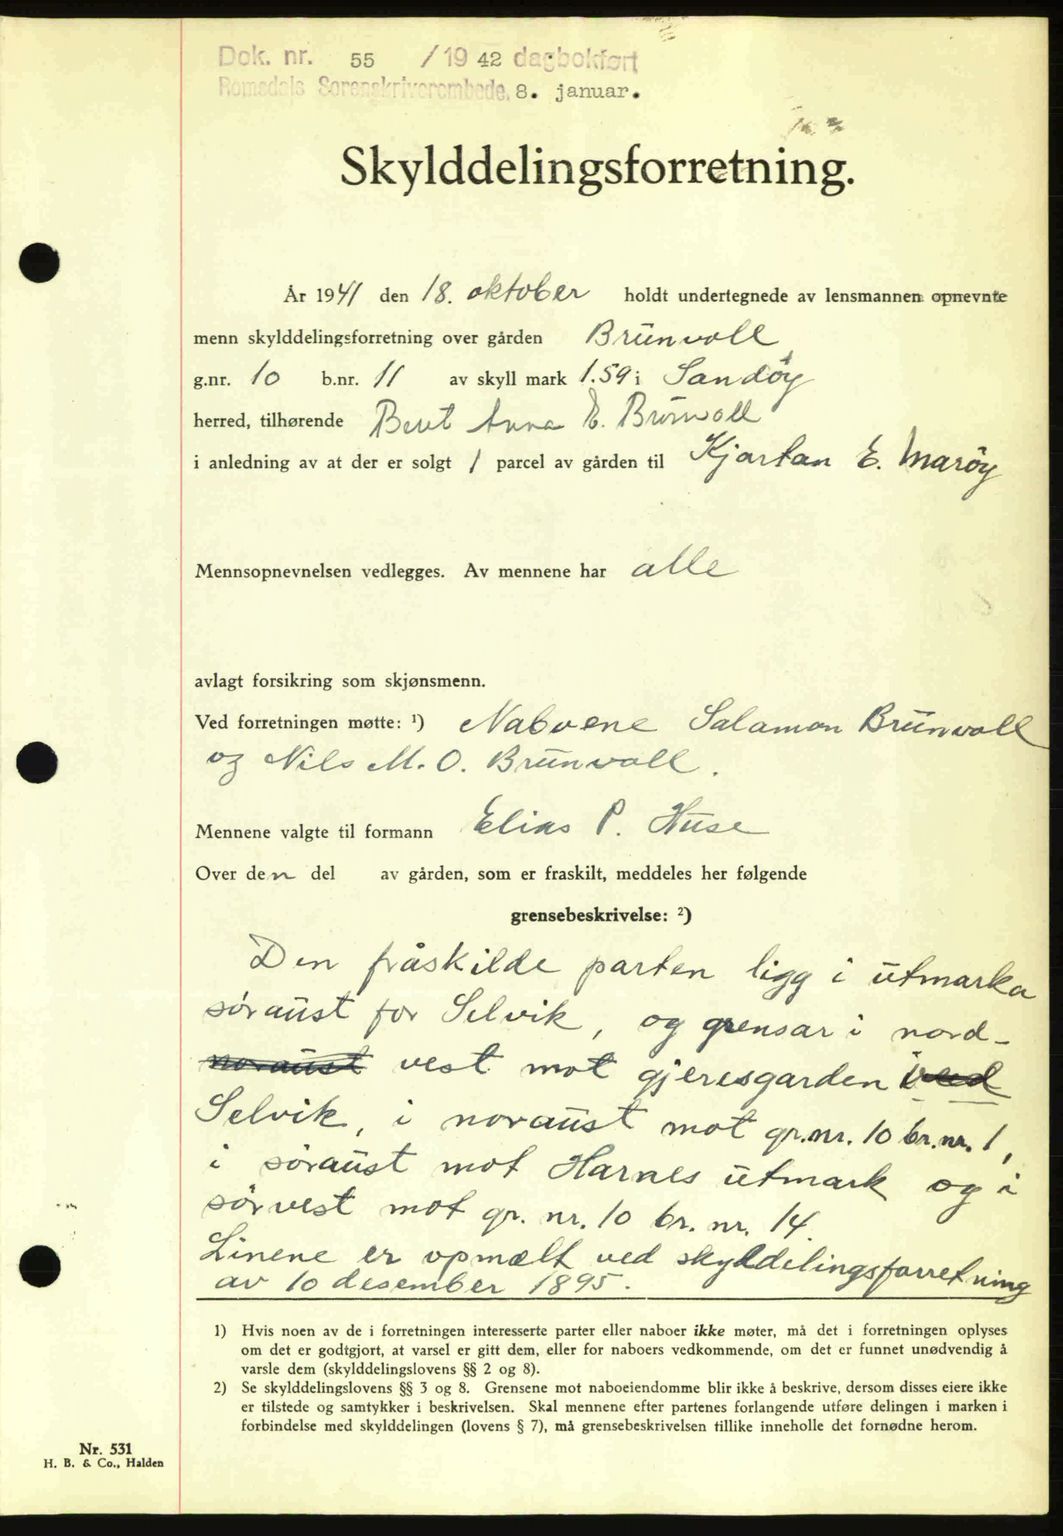 Dok. nr. 55 / 19 42 dagbokført
Romsdals Sorenskriverembede, 8. januar.
Skylddelingsforretning.
År 1941 den 18. oktober holdt undertegnede av lensmannen opnevnte
menn skylddelingsforretning over gården Brünvoll
g.nr. 10 b.nr. 11 av skyll mark 1.59 i Sandøy
herred, tilhørende Beret Anna E. Brünvoll
i anledning av at der er solgt 1 parcel av gården til Kjartan E. Marøy
Mennsopnevnelsen vedlegges. Av mennene har alle
avlagt forsikring som skjønsmenn.
Ved forretningen møtte: ¹) Naboene Salamon Brünvoll
og Nils M. O. Brünvoll.
Mennene valgte til formann Elias P. Huse
Over den del av gården, som er fraskilt, meddeles her følgende
grensebeskrivelse: ²)
Den fråskilde parten ligg i utmarka
søraust for Selvik, og grensar i nord-
noraust vest mot gjeresgarden i ved
Selvik, i noraust mot gr.nr. 10 br.nr. 1,
i søraust mot Harnes utmark og i
sørvest mot gr. nr. 10 br. nr. 14.
Linene er opmælt ved skylddelingsforretning
av 10 desember 1895.
1) Hvis noen av de i forretningen interesserte parter eller naboer ikke møter, må det i forretningen oplyses
om det er godtgjort, at varsel er gitt dem, eller for naboers vedkommende, om det er funnet unødvendig å
varsle dem (skylddelingslovens §§ 2 og 8).
2) Se skylddelingslovens §§ 3 og 8. Grensene mot naboeiendomme blir ikke å beskrive, dersom disses eiere ikke
er tilstede og samtykker i beskrivelsen. Skal mennene efter partenes forlangende utføre delingen i marken i
forbindelse med skylddelingen (lovens § 7), må grensebeskrivelsen tillike inneholle det fornødne herom.
Nr. 531
H. B. & Co., Halden